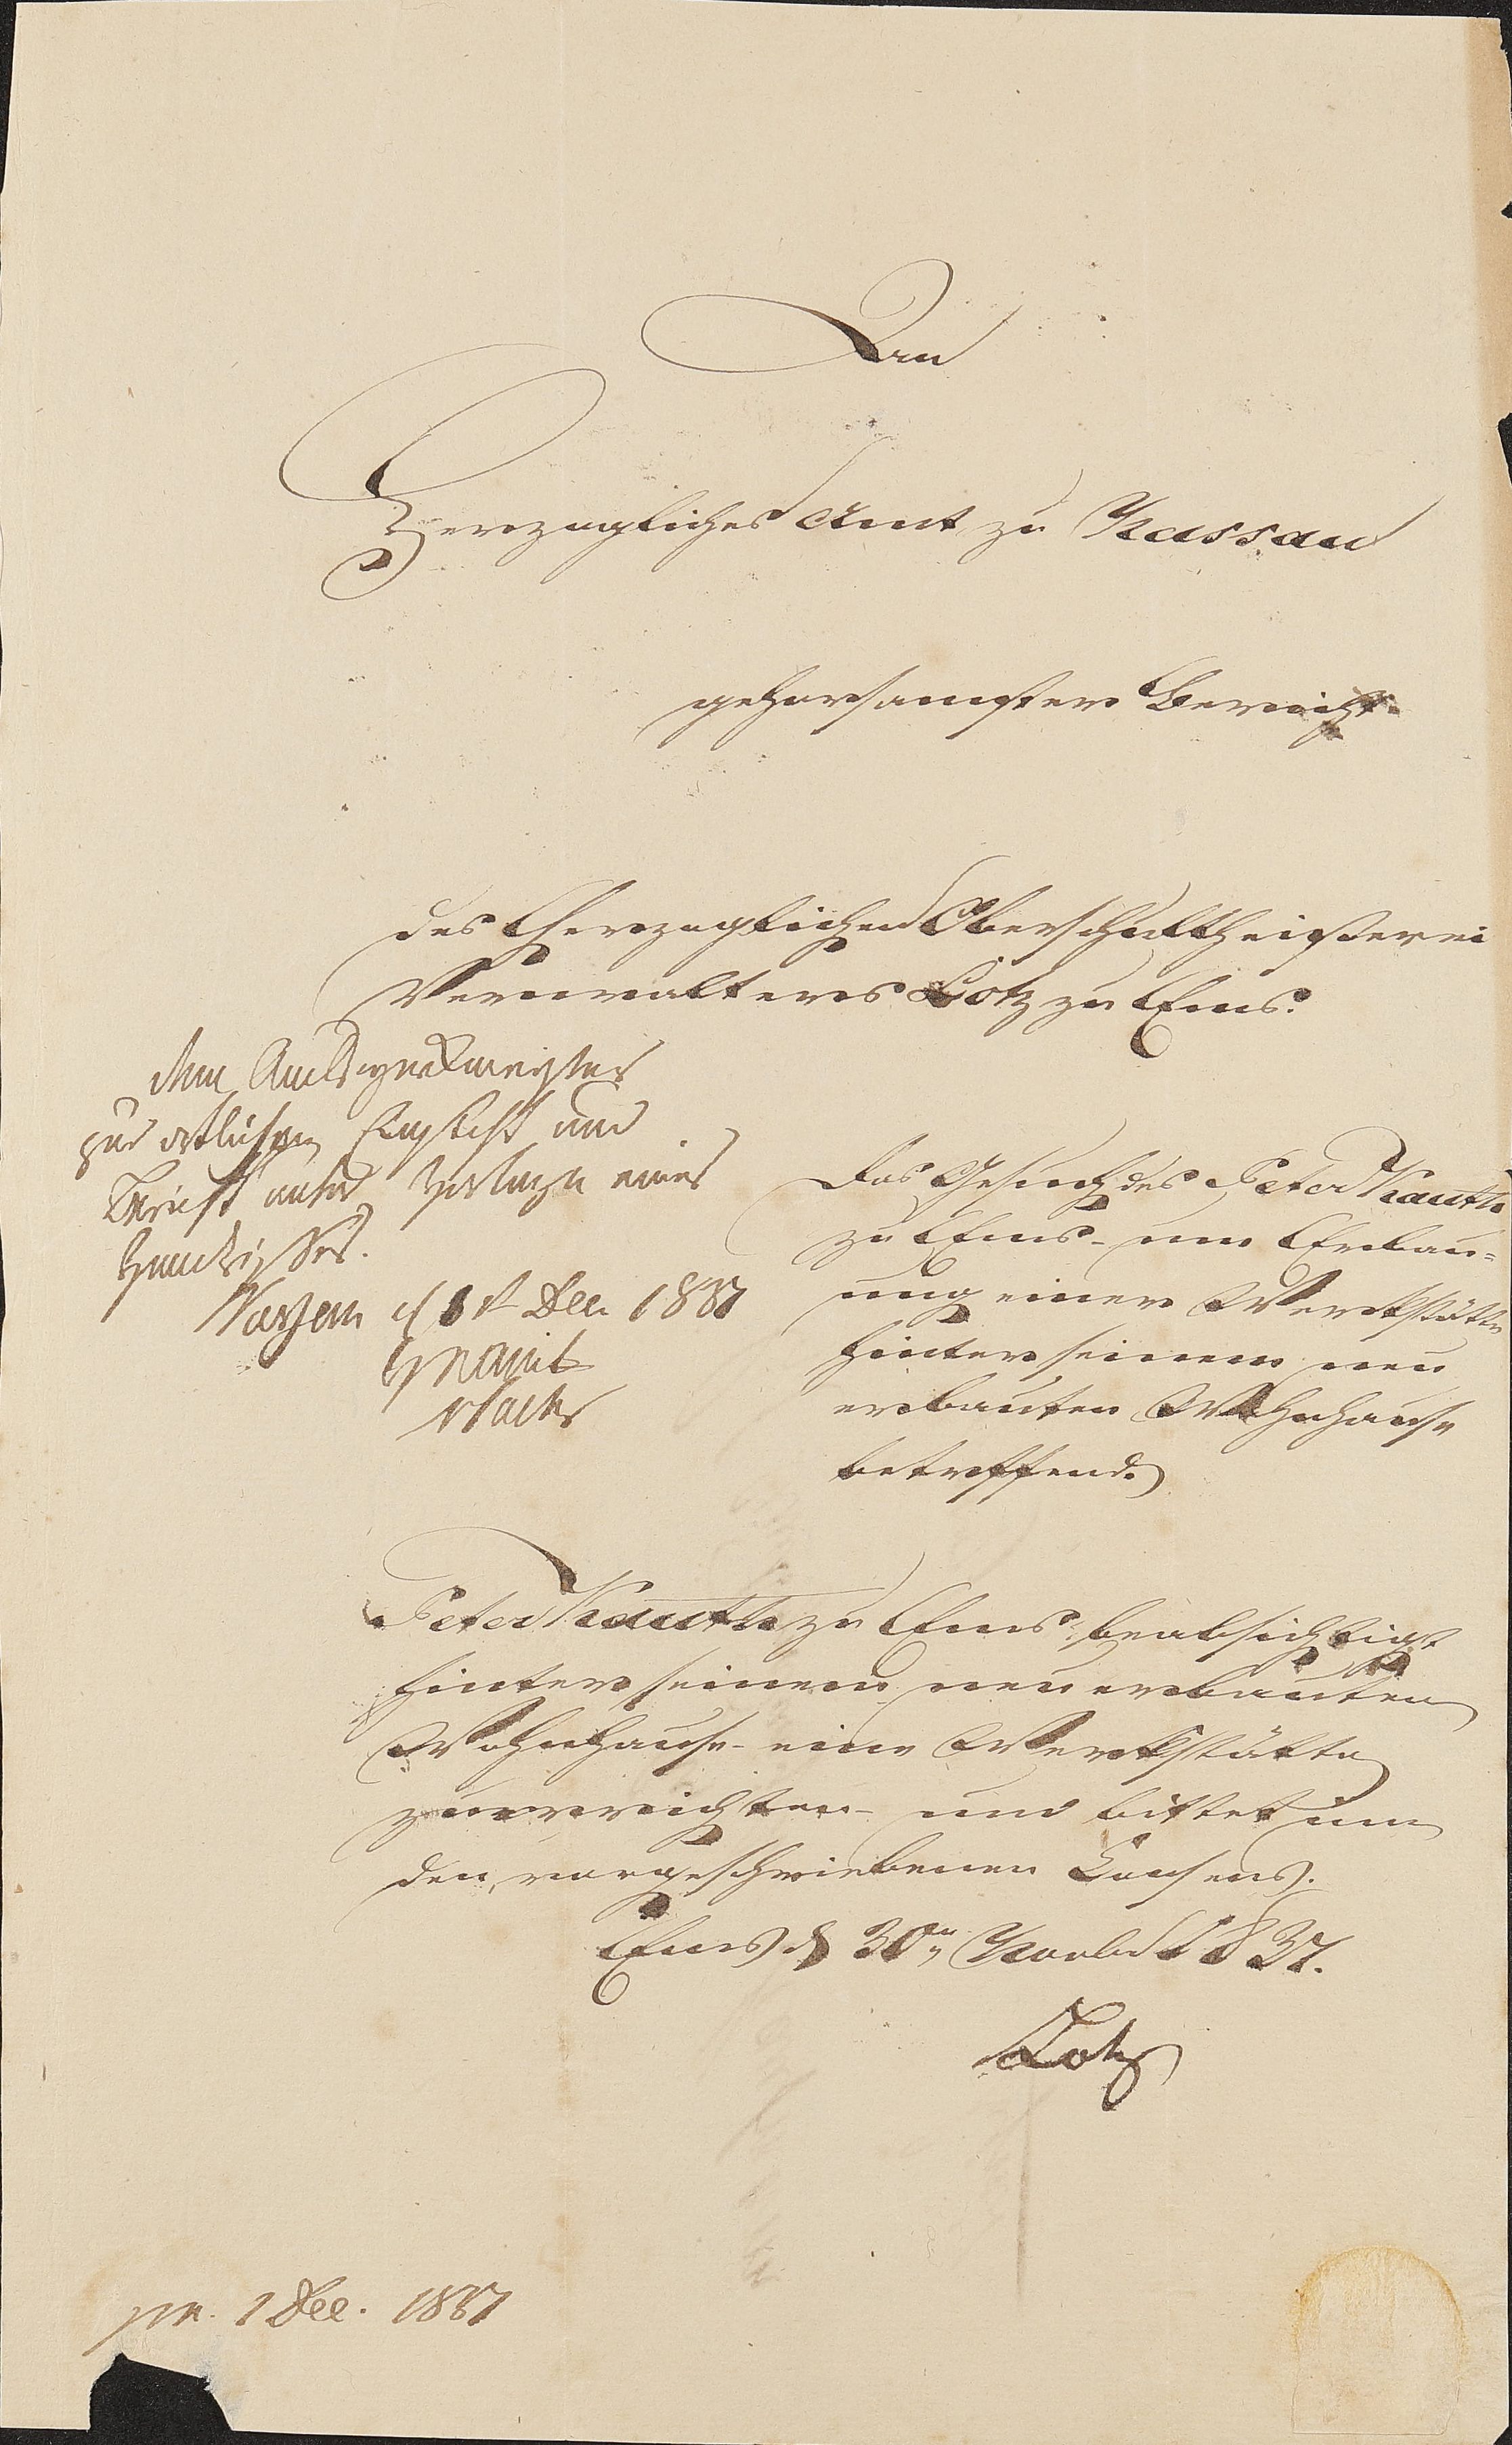 An
Herzogliches Amt zu Nassau
gehorsamster Bericht
des Herzoglichen Oberschultheißerei
Verwalters Lotz zu Ems.
dem Amtswerkmeister
zur örtlichen Einsicht und
Bericht unter Vorlage eines
Handrisses.
Nassau d 1t Dec 1837
H N Amt
Das Gesuch des Peter Kauth
zu Ems um Erbau-
ung einer Werkstätte
hinter seinem neu
erbauten Wohnhause
betreffend.
Peter Kauth zu Ems beabsichtigt
hinter seinem neu erbauten
Wohnhause eine Werkstätte
zu errichten und bittet um
den vorgeschriebenen Consens.
Ems d 30n Novbr 1837.
Lotz
pr. 1 Dec. 1837